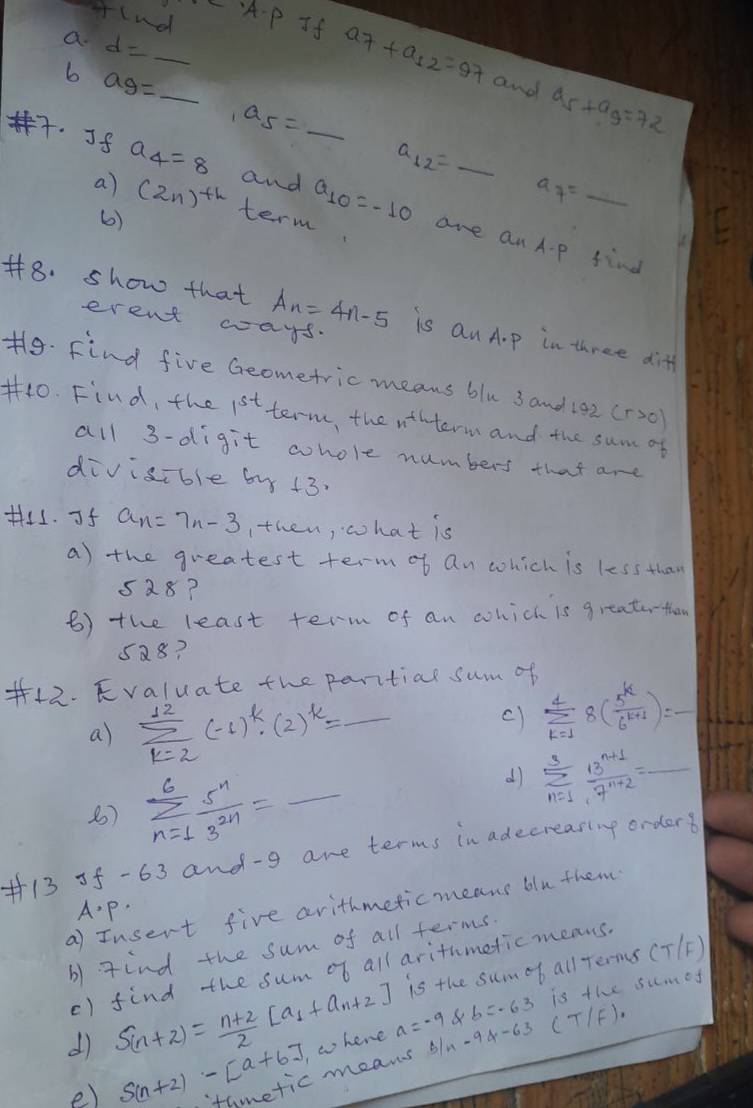 A.p If a7 + a12 = 97 and a5 + a9 = 72
find
a. d = __
b a9 = __ , a5 = __ a12 = __ a7 = __
#7. If a4 = 8 and a10 = -10 are an A.p find
a) (2n)th term.
b)
#8. show that An = 4n-5 is an A.p in three diff
erent ways.
#9. Find five Geometric means b/n 3 and 192 (r>0)
#10. Find, the 1st term, the nth term and the sum of
all 3-digit whole numbers that are
divisible by 13.
#11. If an = 7n-3, then, what is
a) the greatest term of an which is less than
528?
b) the least term of an which is greater than
528?
#12. Evaluate the paritial sum of
a) 12 Σ k=2 (-1)^k . (2)^k = __
c) 4 Σ k=1 8(5^k/6^(k+1)) = __
b) 6 Σ n=1 5^n/3^(2n) = __
d) 3 Σ n=1 13^(n+1)/7^(n+2) = __
#13 If -63 and -9 are terms in a decreasing order of
A.p.
a) Insert five arithmetic means b/n them.
b) Find the sum of all terms.
c) find the sum of all arithmetic means.
d) S(n+2) = n+2/2 [a1 + an+2] is the sum of all Terms (T/F)
e) S(n+2) - [a+b], where a=-9 & b=-63 is the sum of
ithmetic means b/n -9 & -63 (T/F).